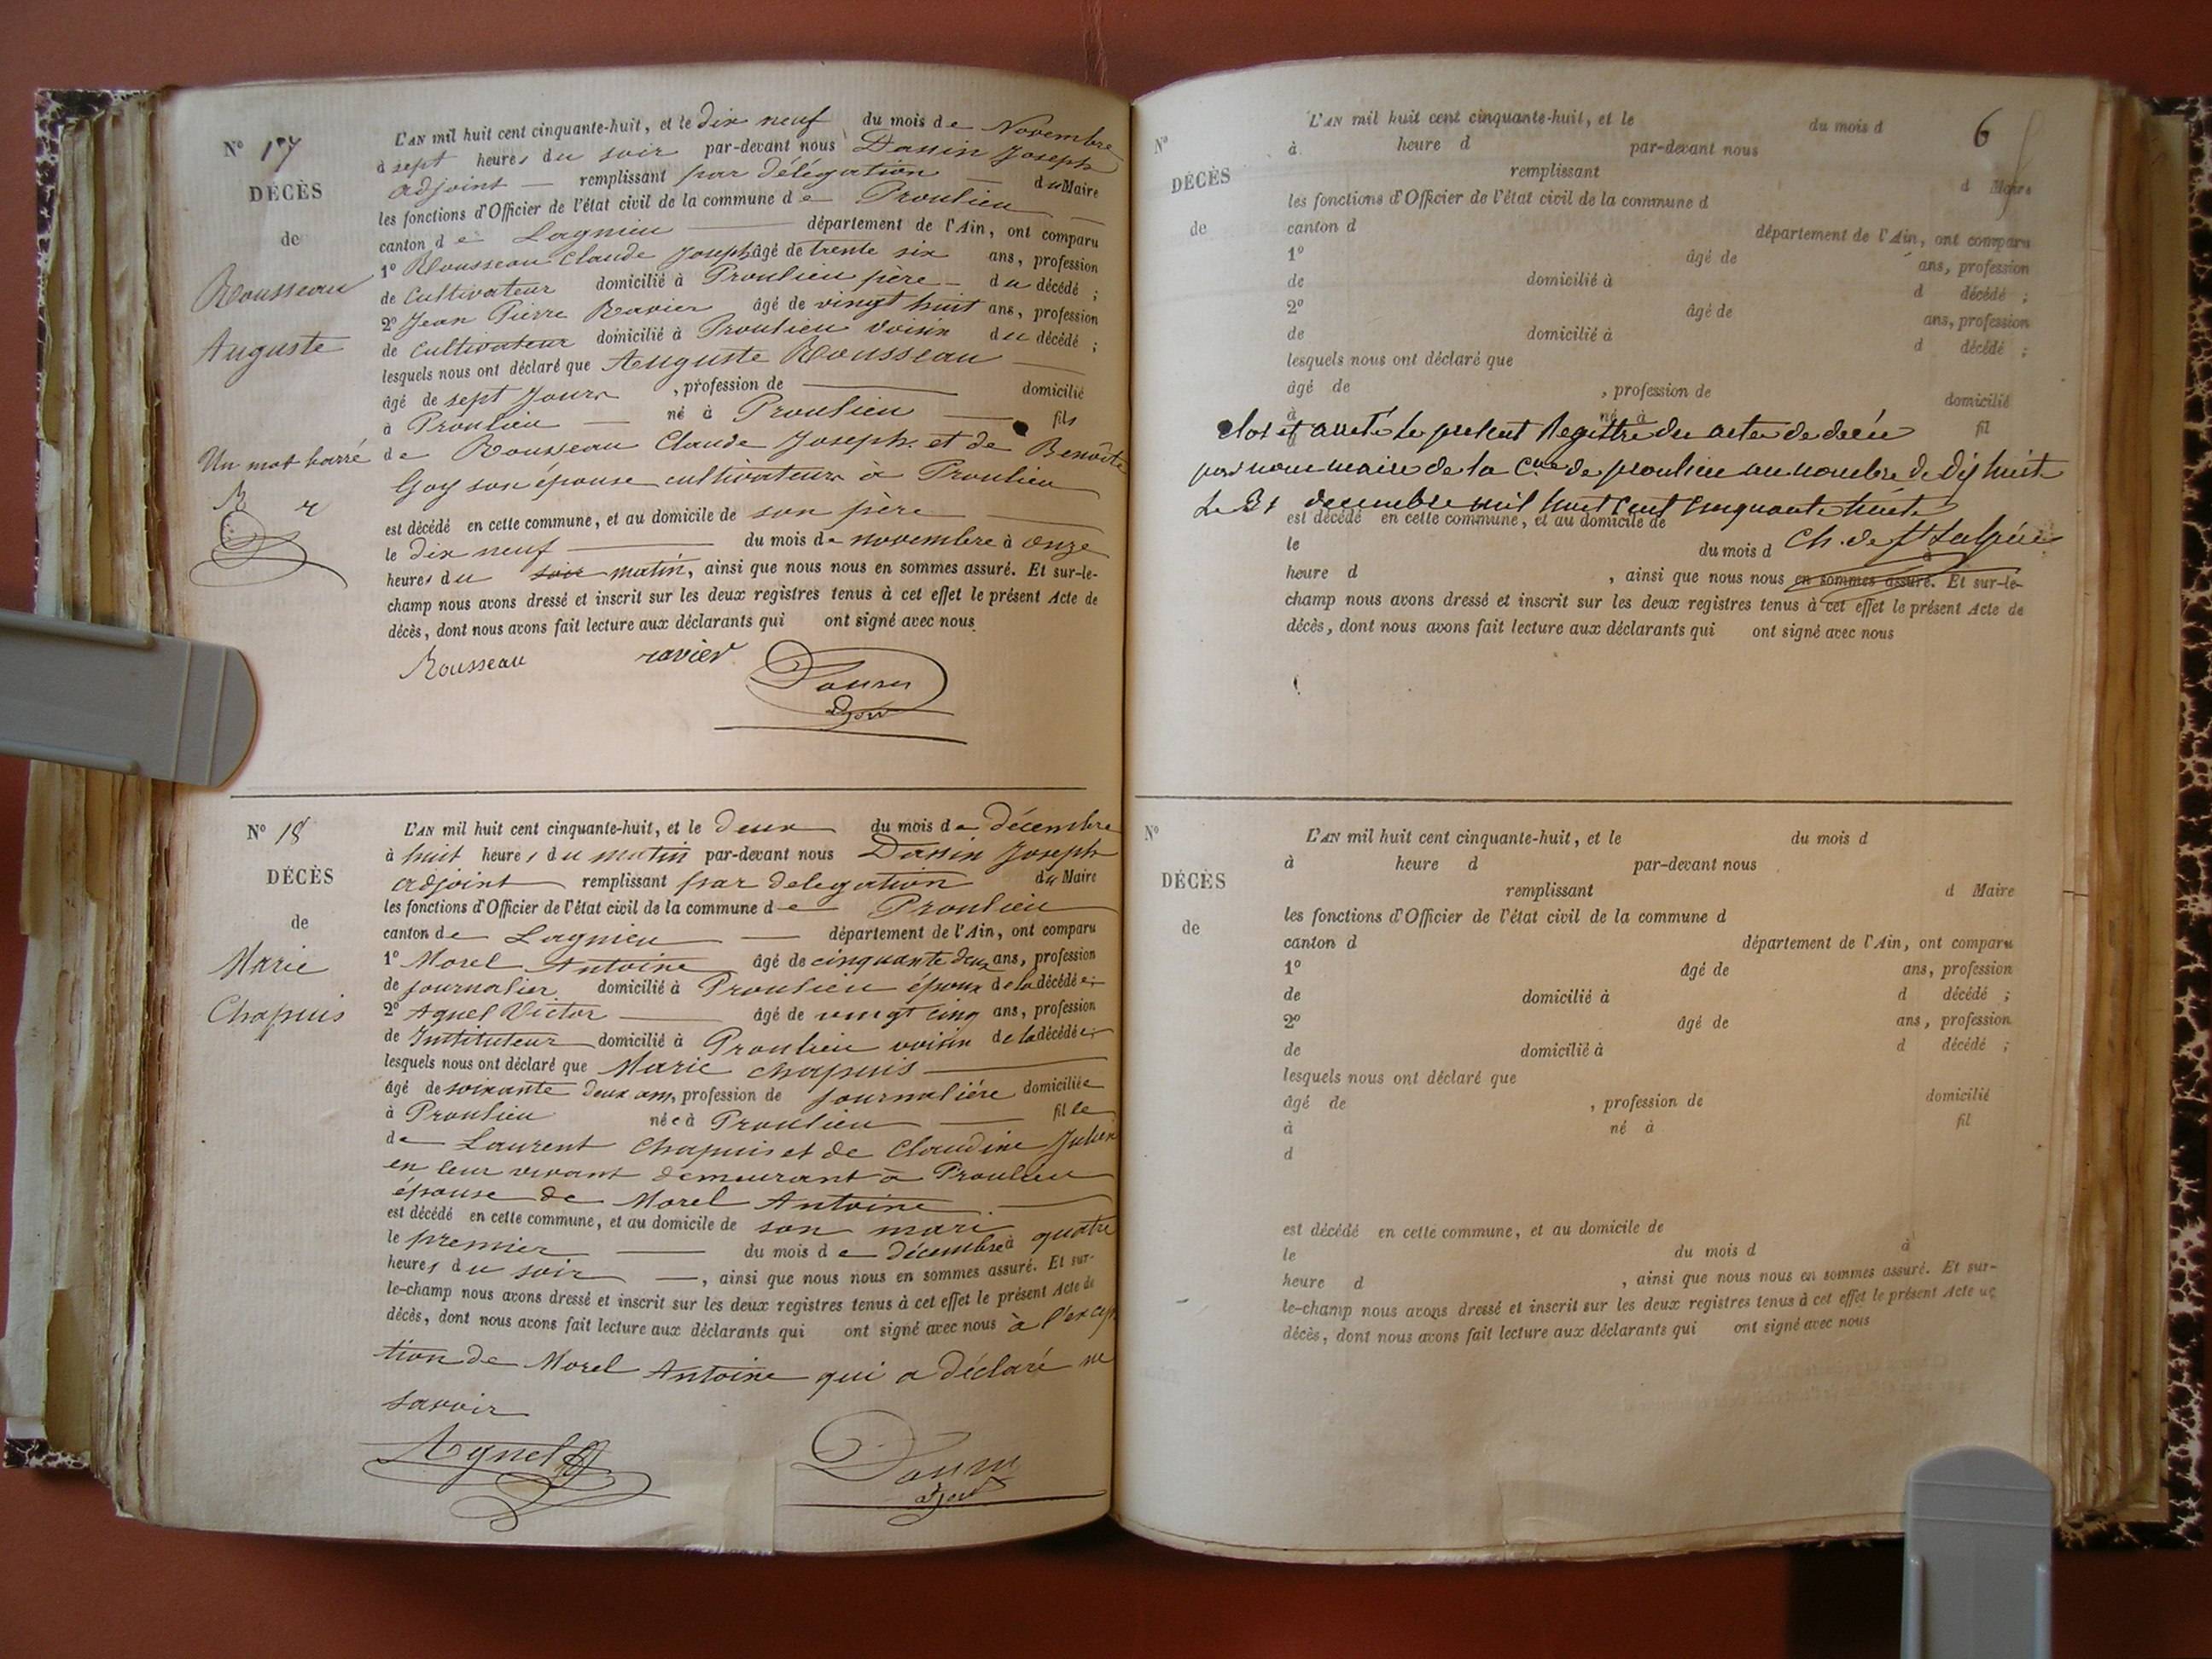 N° 17
DÉCÈS
de
Rousseau
Auguste
Un mot barré
R r
L'AN mil huit cent cinquante-huit, et le dix neuf du mois de Novembre
à sept heures du soir par-devant nous Joseph
adjoint — remplissant par délégation — du Maire
les fonctions d'Officier de l'état civil de la commune de Proulieu
canton de Lagnieu — département de l'Ain, ont comparu
1° Rousseau Claude Joseph âgé de trente six ans, profession
de Cultivateur domicilié à Proulieu père — du décédé ;
2° Jean Pierre Ravier âgé de vingt huit ans, profession
de Cultivateur domicilié à Proulieu voisin du décédé ;
lesquels nous ont déclaré que Auguste Rousseau —
âgé de sept Jours , profession de — domicilié
à Proulieu — né à Proulieu — fils
de Rousseau Claude Joseph et de Benoîte
Goy son épouse cultivateurs à Proulieu
est décédé en cette commune, et au domicile de son père —
le dix neuf — du mois de novembre à onze
heures du soir matin, ainsi que nous nous en sommes assuré. Et sur-le-
champ nous avons dressé et inscrit sur les deux registres tenus à cet effet le présent Acte de
décès, dont nous avons fait lecture aux déclarants qui ont signé avec nous
Rousseau ravier
N° 18
DÉCÈS
de
Marie
Chapuis
L'AN mil huit cent cinquante-huit, et le deux du mois de décembre
à huit heures du matin par-devant nous Joseph
adjoint — remplissant par delegation du Maire
les fonctions d'Officier de l'état civil de la commune de Proulieu
canton de Lagnieu — département de l'Ain, ont comparu
1° Morel Antoine âgé de cinquante deux ans, profession
de journalier domicilié à Proulieu époux de la décédée ;
2° Agnel Victor — âgé de vingt cinq ans, profession
de Instituteur domicilié à Proulieu voisin de la décédée ;
lesquels nous ont déclaré que Marie chapuis —
âgé de soixante deux ans, profession de journalière domiciliée
à Proulieu née à Proulieu — fille
de Laurent Chapuis et de Claudine Julien
en leur vivant demeurant à Proulieu
épouse de Morel Antoine —
est décédé en cette commune, et au domicile de son mari
le premier — du mois de décembre à quatre
heures du soir —, ainsi que nous nous en sommes assuré. Et sur-
le-champ nous avons dressé et inscrit sur les deux registres tenus à cet effet le présent Acte de
décès, dont nous avons fait lecture aux déclarants qui ont signé avec nous à l'excep
tion de Morel Antoine qui a déclaré ne
savoir
Agnel
6
N°
DÉCÈS
de
L'AN mil huit cent cinquante-huit, et le du mois d
à heure d par-devant nous
remplissant d Maire
les fonctions d'Officier de l'état civil de la commune d
canton d département de l'Ain, ont comparu
1° âgé de ans, profession
de domicilié à d décédé ;
2° âgé de ans, profession
de domicilié à d décédé ;
lesquels nous ont déclaré que
âgé de , profession de domicilié
à né à fil
Clos et arreté le present Registre des actes de décès
par nous maire de la Cne de proulieu au nombre de dix huit
Le 31 decembre mil huit cent cinquante huit
est décédé en cette commune, et au domicile de
le du mois d à
Ch. de
heure d , ainsi que nous nous en sommes assuré. Et sur-le-
champ nous avons dressé et inscrit sur les deux registres tenus à cet effet le présent Acte de
décès, dont nous avons fait lecture aux déclarants qui ont signé avec nous
N°
DÉCÈS
de
L'AN mil huit cent cinquante-huit, et le du mois d
à heure d par-devant nous
remplissant d Maire
les fonctions d'Officier de l'état civil de la commune d
canton d département de l'Ain, ont comparu
1° âgé de ans, profession
de domicilié à d décédé ;
2° âgé de ans, profession
de domicilié à d décédé ;
lesquels nous ont déclaré que
âgé de , profession de domicilié
à né à fil
d
est décédé en cette commune, et au domicile de
le du mois d à
heure d , ainsi que nous nous en sommes assuré. Et sur-
le-champ nous avons dressé et inscrit sur les deux registres tenus à cet effet le présent Acte de
décès, dont nous avons fait lecture aux déclarants qui ont signé avec nous